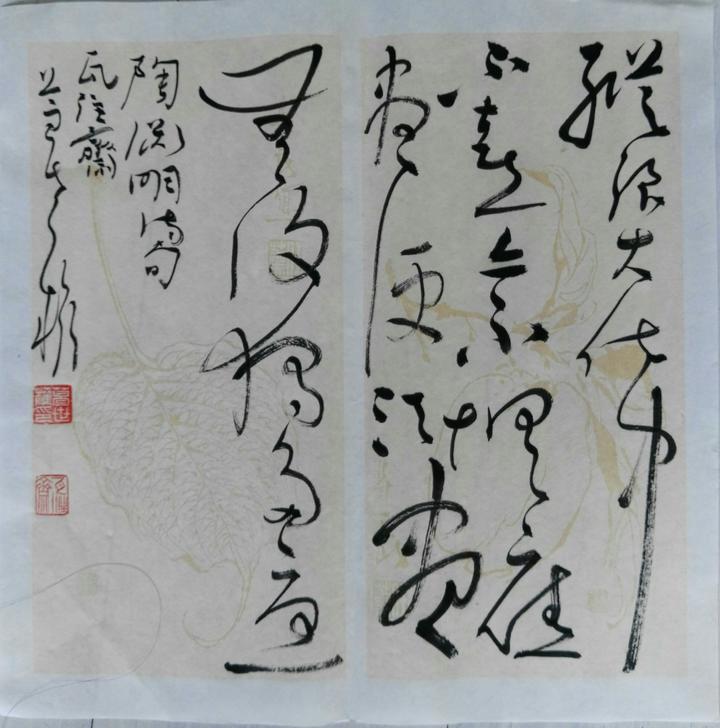 縱浪大化中
不喜亦不懼應
盡便須盡
無復獨多慮
陶淵明詩句
瓦注齋